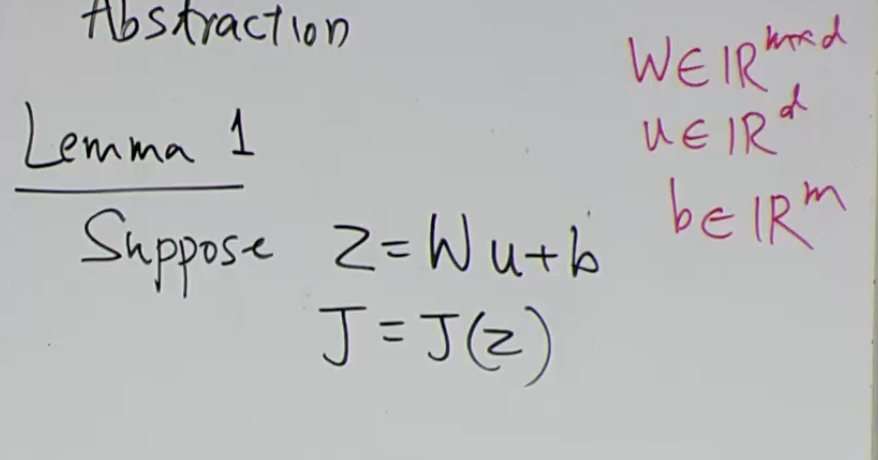 Abstraction
Lemma 1
Suppose z = Wu + b
J = J(z)
W ∈ ℝ^{m×d}
u ∈ ℝ^d
b ∈ ℝ^m